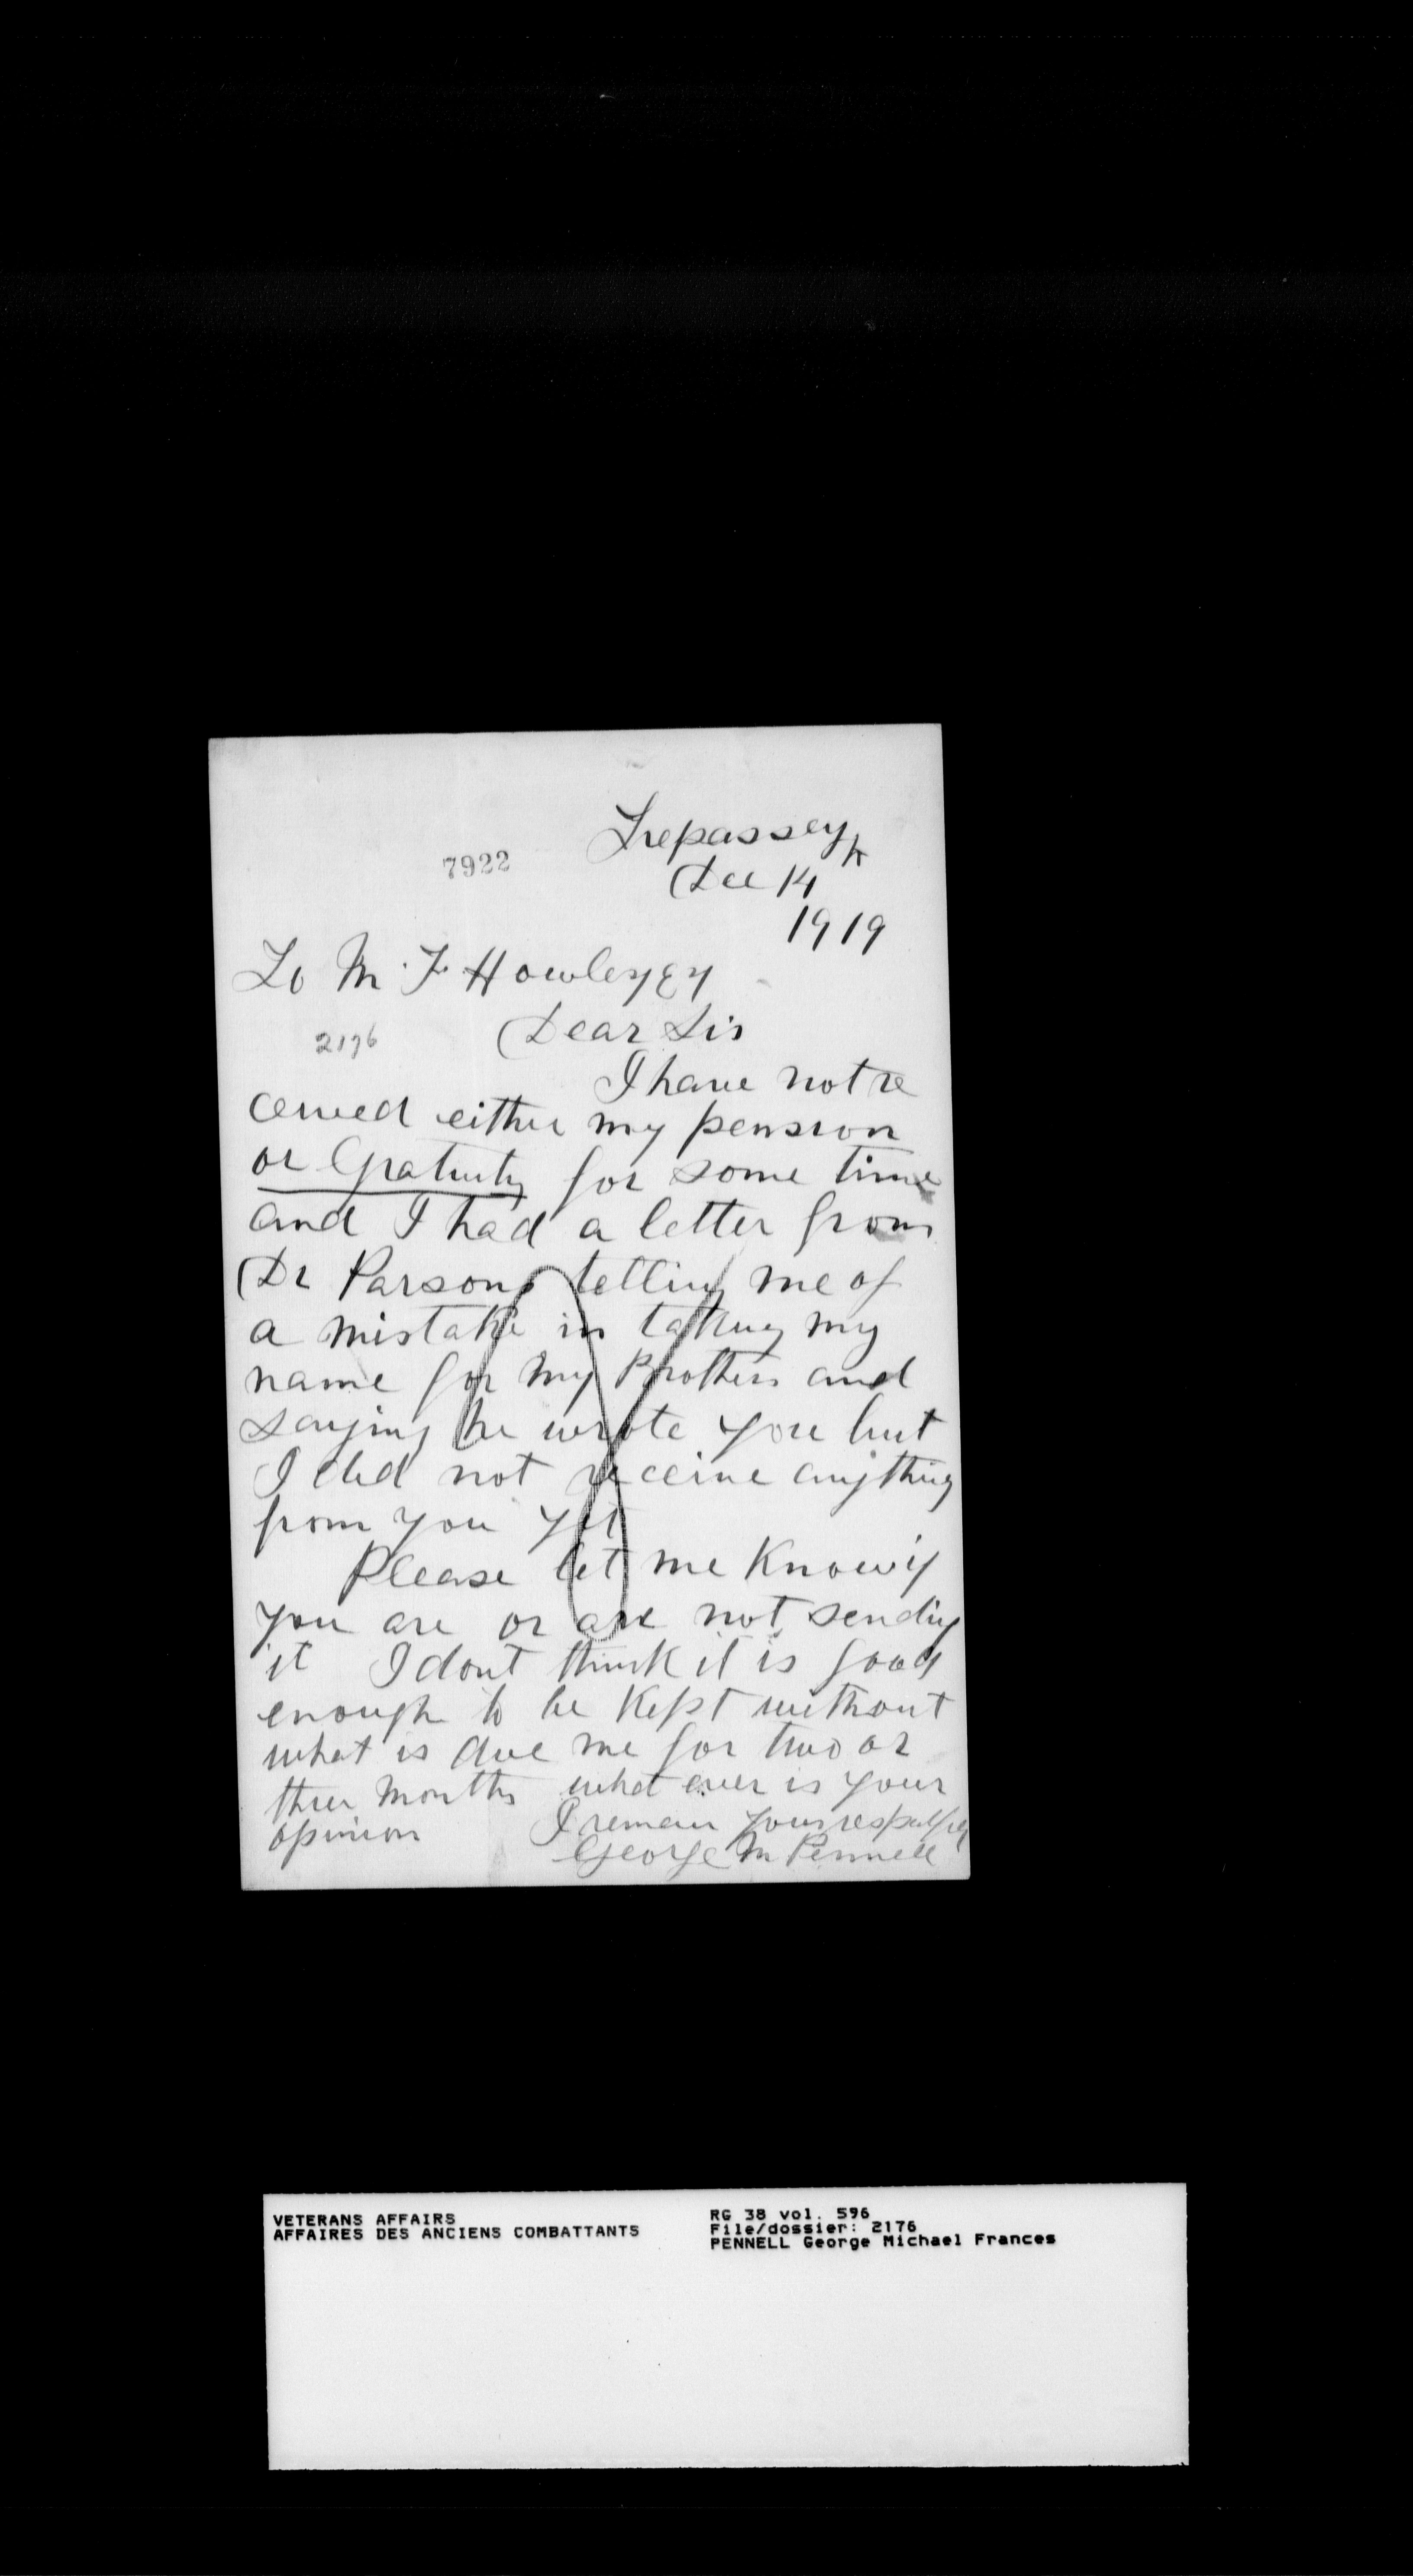 Trepassey
7922
Dec 14
1919
To M. F. Howley
2176
Dear Sir
I have not re
ceived either my pension
or Gratuity for some time
and I had a letter from
Dr Parsons telling me of
a mistake in taking my
name for my Brothers and
saying he wrote you but
I did not receive anything
from you yet
Please let me Know if
you are or are not sending
it I dont think it is good
enough to be Kept without
what is due me for two or
three months what ever is your
opinion I remain yours
George M Pennell
VETERANS AFFAIRS
AFFAIRES DES ANCIENS COMBATTANTS
RG 38 vol. 596
File/dossier: 2176
PENNELL George Michael Frances